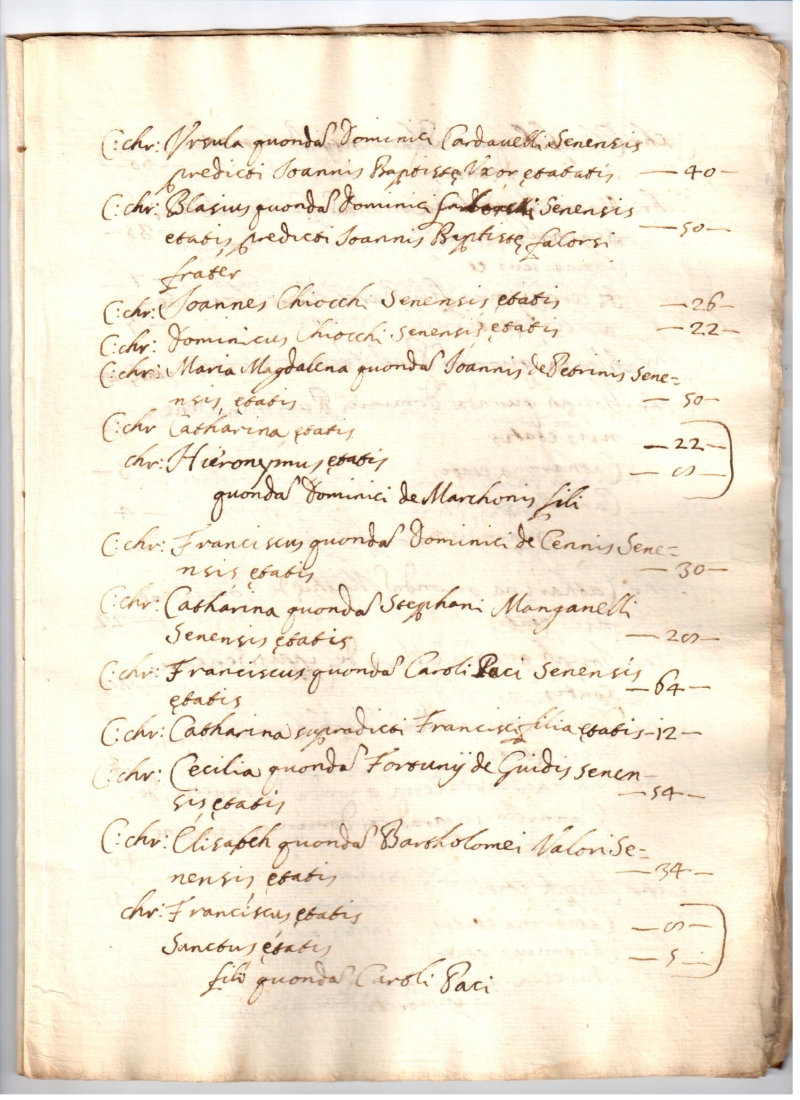 C: chr: Ursula quonda Dominici Cardavelli Senensis
predicti Joannis Baptistę Vxor ętatatis — 40 —
C: chr: Blasius quonda Dominici Senensis
etatis predicti Joannis Baptistę falorsi — 50 —
frater
C: chr: Joannes Chiocchi Senensis ętatis — 26 —
C: chr: Dominicus Chiocchi Senensis ętatis — 22 —
C: chr: Maria Magdalena quonda Joannis de Petrinis Sene=
nsis ętatis — 50 —
C: chr Catharina ętatis — 22 —
chr: Hieronymus ętatis
quonda Dominici de Marchonis fili
C: chr: Franciscus quonda Dominici de Cennis Sene=
nsis ętatis — 30 —
C: chr: Catharina quonda Stephani Manganelli
Senensis ętatis
C: chr: Franciscus quonda Caroli Paci Senensis
ętatis — 64 —
C: chr: Catharina supradicti Francisci filia ętatis — 12 —
C: chr: Cecilia quonda Fortunij de Guidis senen-
sis ętatis — 54 —
C: chr: Elisabeh quonda Bartholomei Valori Se=
nensis ętatis — 34 —
chr: Franciscus ętatis
Sanctus ętatis — 5 —
filii quonda Caroli Paci